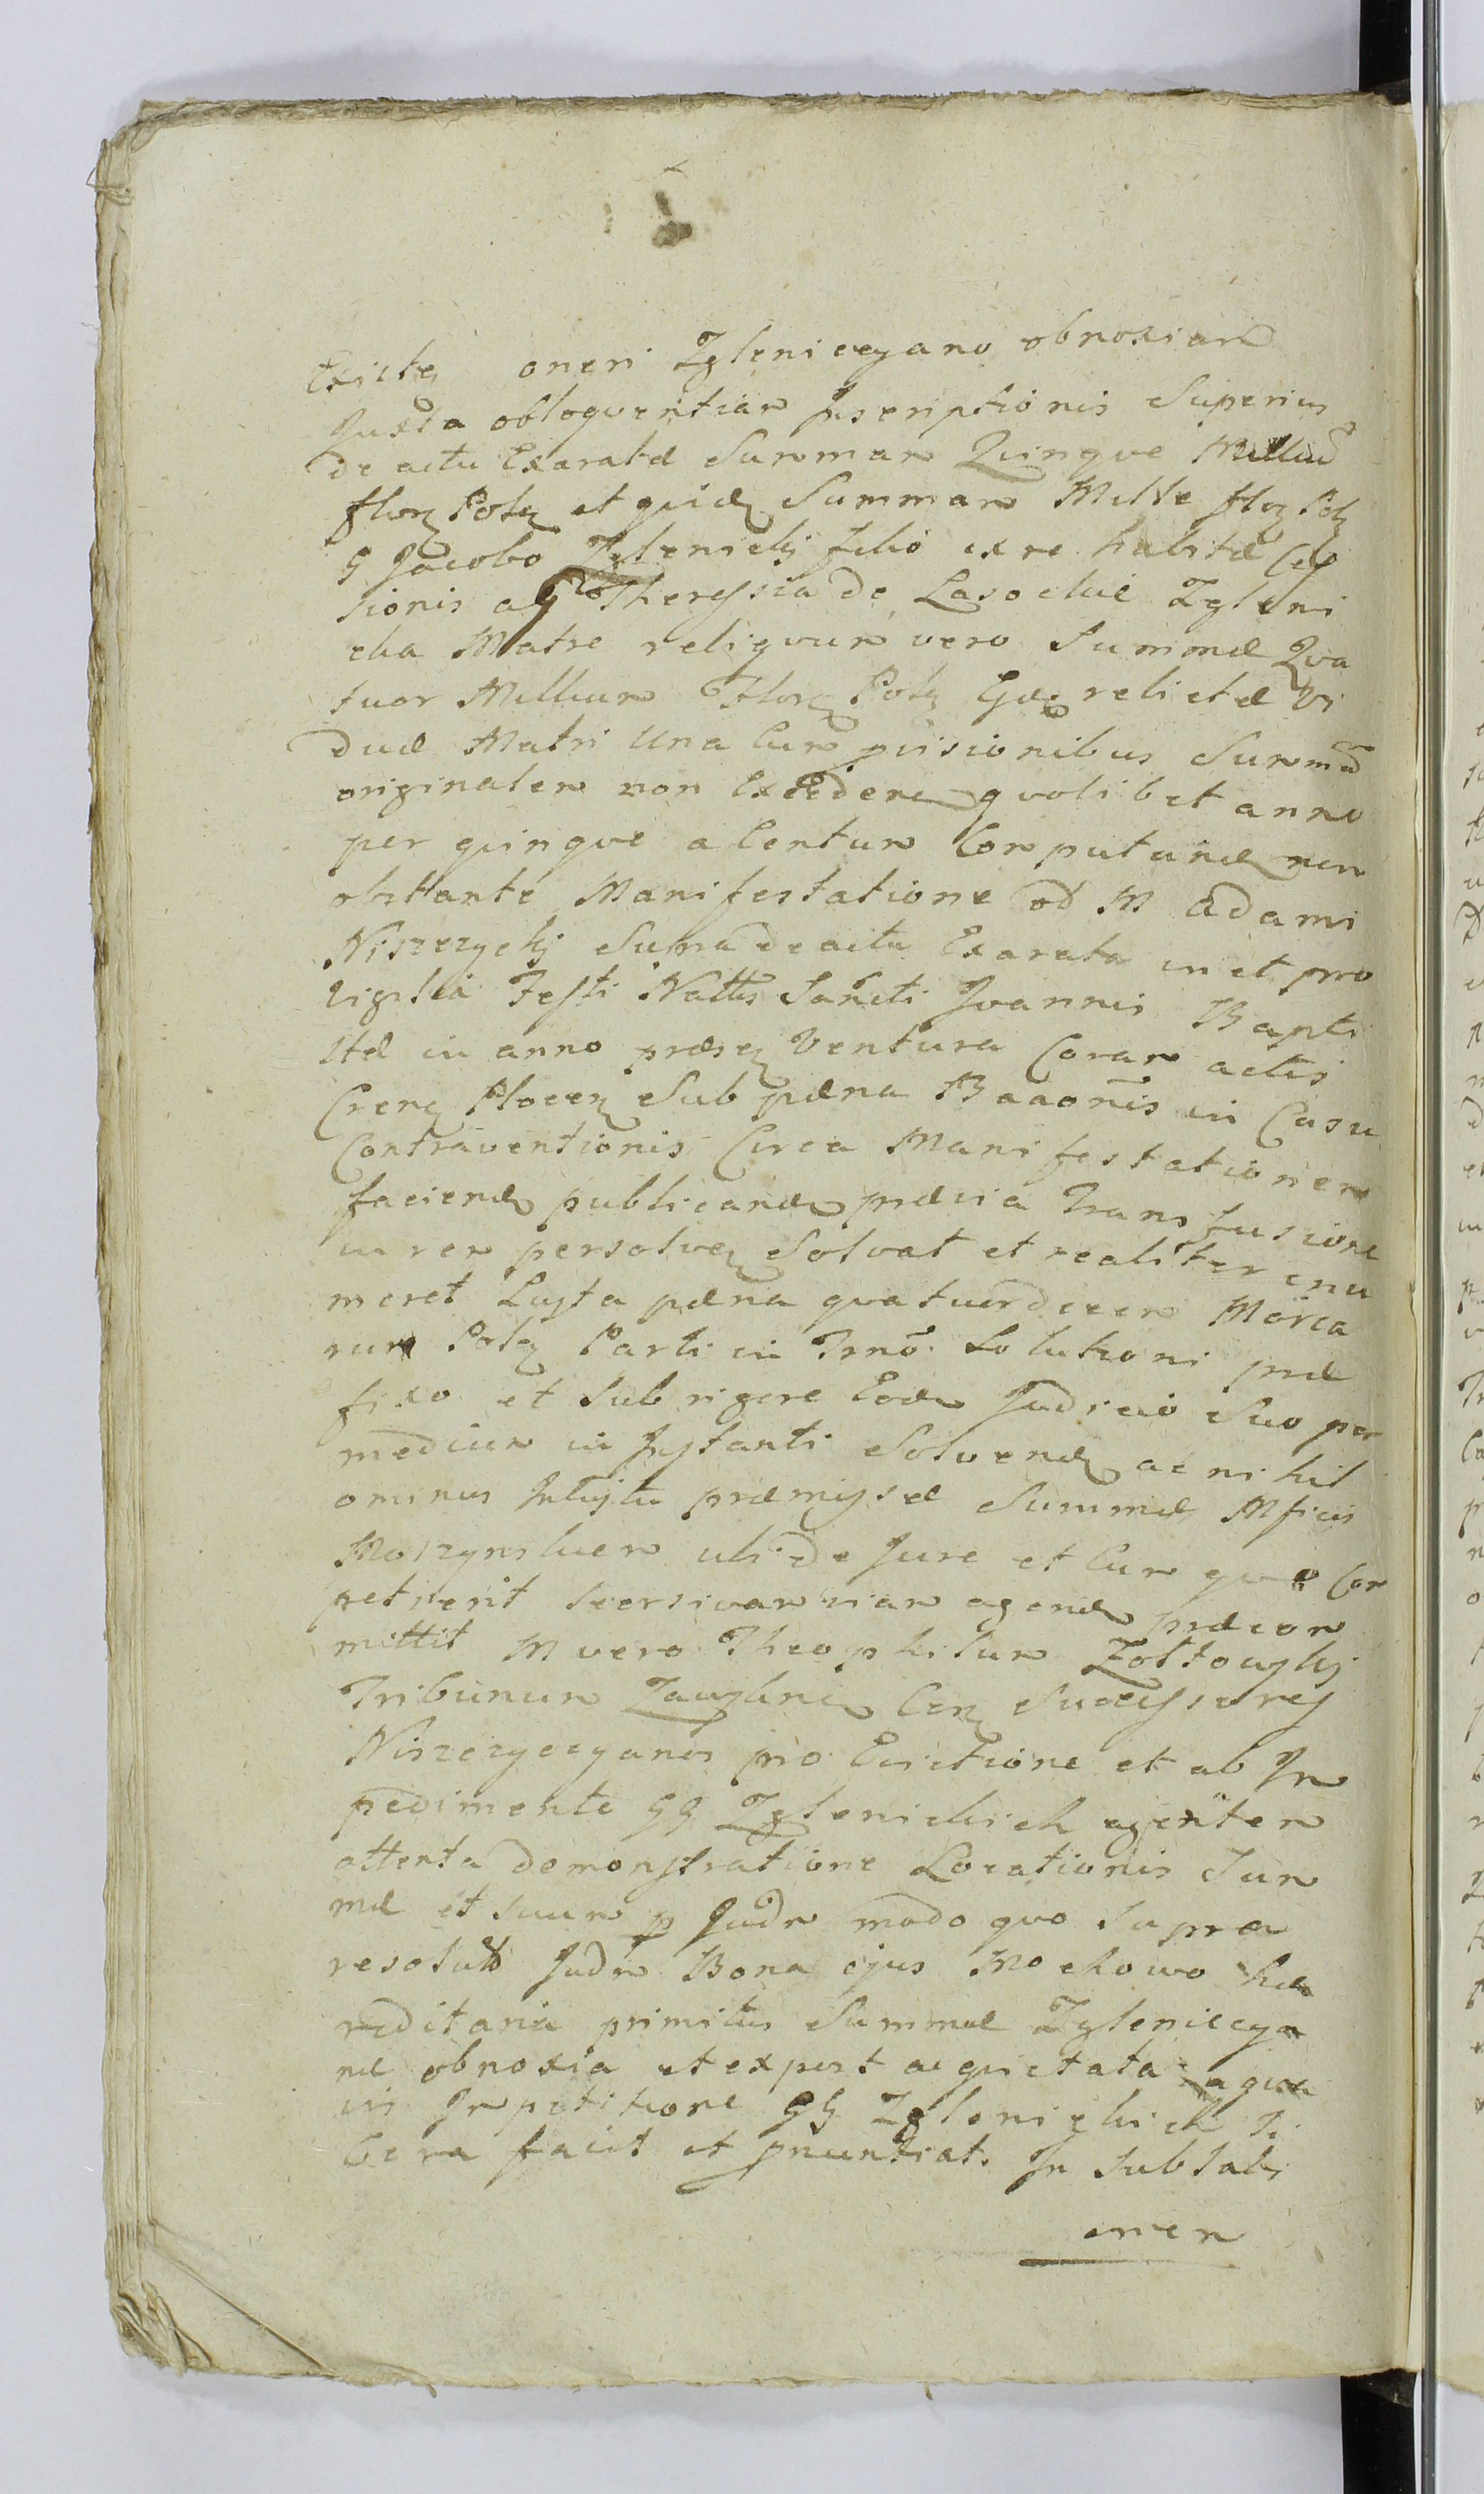 oneri Zgleniccyano obnoxiam
Juxta obloquentiam Inscriptionis Superius
de actu Exaratæ Summam Quinque Millium
florꝫ Polꝫ et quidꝫ Summam Mille florꝫ Polꝫ
G Jacobo Zglenickj filio ex re habitæ Ces
sionis a G Theressia de Lasockie Zgleni
cka Matre reliquum vero Summæ Qua
tuor Millium Florꝫ Polꝫ Gdæ relictæ Vi
duæ Matri Una Cum Summã
originalem non Excedere quolibet anno
per quinque a Centum Computand non
obstante Manifestatione M Adami
Niszczyckj de actu Exarata in et pro
Vigilia Festi Nattis Sancti Joannis Bapti
stæ in anno præsꝫ Ventura Coram actis
Plocenꝫ Sub pæna Baãonis in Casu
Contraventionis Circa Manifestationem
faciend publicand prævia Transfusione
in rem persolvenꝫ Solvat et realiter enu
meret Luyta pæna quatuordecem Marca
rum Polꝫ Parti in Trnõ Solutioni præ
fixo et Sub rigore Eodem Judicio Suo per
medium in Instanti Solvend ac nihil
ominus Intuitu præmissæ Summæ Mficis
ubi de Jure et Cum quo Com
petierit seorsivam viam agend præcom
mittit M vero Theophilum Zoltowskj
Tribunum Cerꝫ Successores
Niszczyccyanos pro Evictione et ab Im
pedimento GG Zglenickich agentem
attenta demonstratione Locationis Sum
mæ et suum p Judm modo quo Supra
resolut Judm Bona ejus Mochowo hæ
reditaria primitus Summæ Zgleniccya
næ obnoxia et exposit acquietata a quavis
Impetitione GG Zglenickich li
bera facit et pnuntiat. In subsali
men